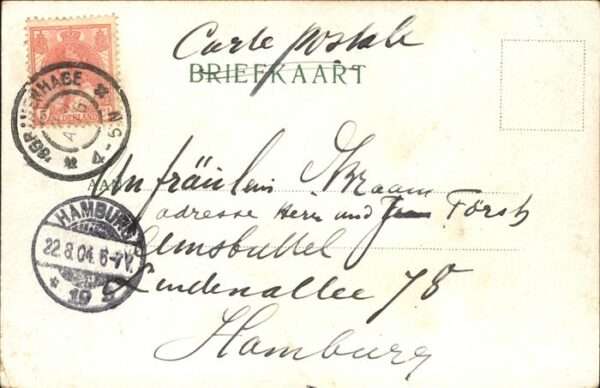 Carte postale
BRIEFKAART
'SGRAVENHAGE
4-5N
AAN
An fräulein Kraam
adresse Herrn und Frau Först
Eimsbuttel
Lindenallee 78
Hamburg
HAMBURG
22.8.04.6-7V.
* 19